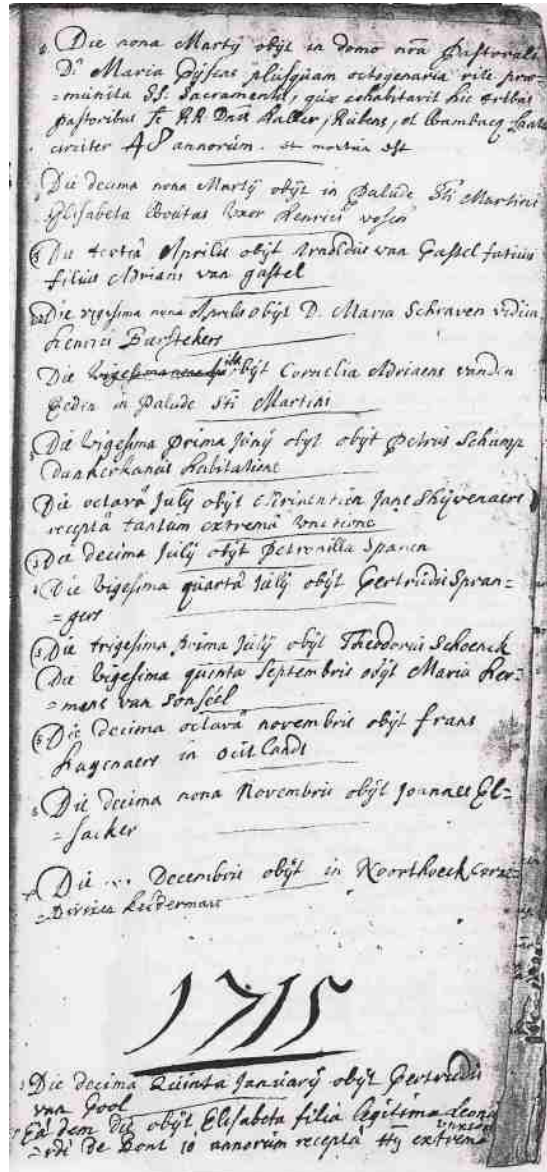 Die nona Martij obijt in domo nrã Pastorali
Dã Maria plusquam octogenaria rite præ-
=munita SS. Sacramentis, quæ cohabitavit hic tribus
pastoribus RR. Dnis Haller, Rubens, et
circiter 48 annorum. et mortua est
Die decima nona Martij obijt in Palude Sti Martini
Elisabeta Woutas uxor Henrici vosen
Die tertia Aprilis obijt van Gastel
filius Adriani van gastel
Die vigesima nona Aprilis obijt D. Maria Schraven vidua
Henrici Barstekers
Die obijt Cornelia Adriaens vanden
Eeden in Palude Sti Martini
Die vigesima prima Junij obijt obijt Petrus Schamp
habitatione
Die octava Julij obijt Jans Schijvenaers
recepta tantum extrema unctione
Die decima Julij obijt Petronilla Spanen
Die vigesima quarta Julij obijt Gertrudis Spran=
=gers
Die trigesima prima Julij obijt Theodorus Schoenck
Die vigesima quinta Septembris obijt Maria Her=
=mans van Sonséel
Die decima octava novembris obijt frans
hagenaers in
Die decima nona Novembris obijt Joannes El=
=sacker
Die ... Decembris obijt in Noorthoeck
1715
Die decima Quinta Januarij obijt Gertrudis
van Gool
Ea dem die obijt Elisabeta filia legitima Leonæ
=rdi De Bont 10 annorum recepta extrema
unxione